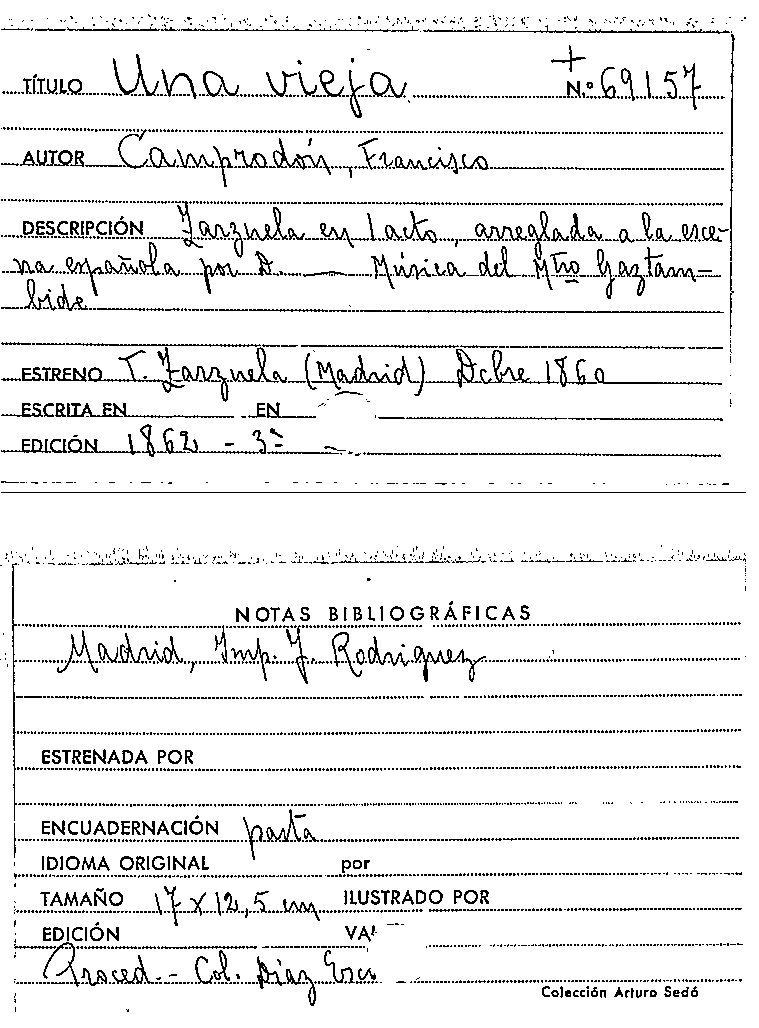 TÍTULO Una vieja + N.º 69157
AUTOR Camprodón, Francisco
DESCRIPCIÓN Zarzuela en 1 acto, arreglada a la esce-
na española por D. — Música del Mtro Gaztam-
bide
ESTRENO T. Zarzuela (Madrid) Dcbre 1860
ESCRITA EN EN
EDICIÓN 1862 - 3ª -
NOTAS BIBLIOGRÁFICAS
Madrid, Imp. J. Rodriguez
ESTRENADA POR
ENCUADERNACIÓN pasta
IDIOMA ORIGINAL por
TAMAÑO 17 x 12,5 cm ILUSTRADO POR
EDICIÓN VA
Proced.- Col. Díaz Esco
Colección Arturo Sedó